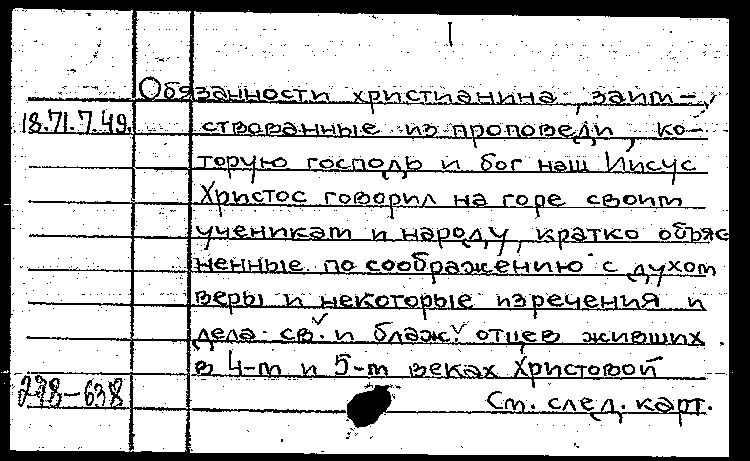 I
Обязанности христианина, заим-
18.71.7.49.
ствованные из проповеди, ко-
торую господь и бог наш Иисус
Христос говорил на горе своим
ученикам и народу, кратко объяс
ненные по соображению с духом
веры и некоторые изречения и
дела св. и блаж. отцев живших
в 4-м и 5-м веках Христовой
278-638
См. след. карт.